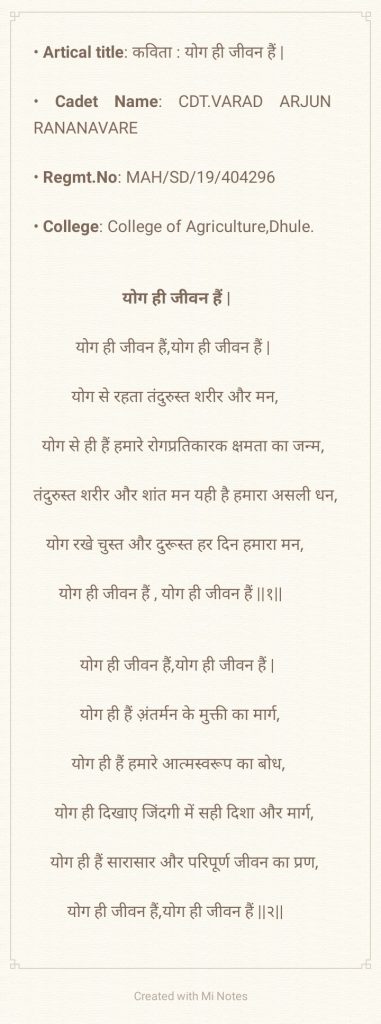 • Artical title: कविता : योग ही जीवन हैं |
• Cadet Name: CDT.VARAD ARJUN
RANANAVARE
• Regmt.No: MAH/SD/19/404296
• College: College of Agriculture,Dhule.
योग ही जीवन हैं |
योग ही जीवन हैं,योग ही जीवन हैं |
योग से रहता तंदुरुस्त शरीर और मन,
योग से ही हैं हमारे रोगप्रतिकारक क्षमता का जन्म,
तंदुरुस्त शरीर और शांत मन यही है हमारा असली धन,
योग रखे चुस्त और दुरूस्त हर दिन हमारा मन,
योग ही जीवन हैं , योग ही जीवन हैं ||१||
योग ही जीवन हैं,योग ही जीवन हैं |
योग ही हैं अ़ंतर्मन के मुक्ती का मार्ग,
योग ही हैं हमारे आत्मस्वरूप का बोध,
योग ही दिखाए जिंदगी में सही दिशा और मार्ग,
योग ही हैं सारासार और परिपूर्ण जीवन का प्रण,
योग ही जीवन हैं,योग ही जीवन हैं ||२||
Created with Mi Notes